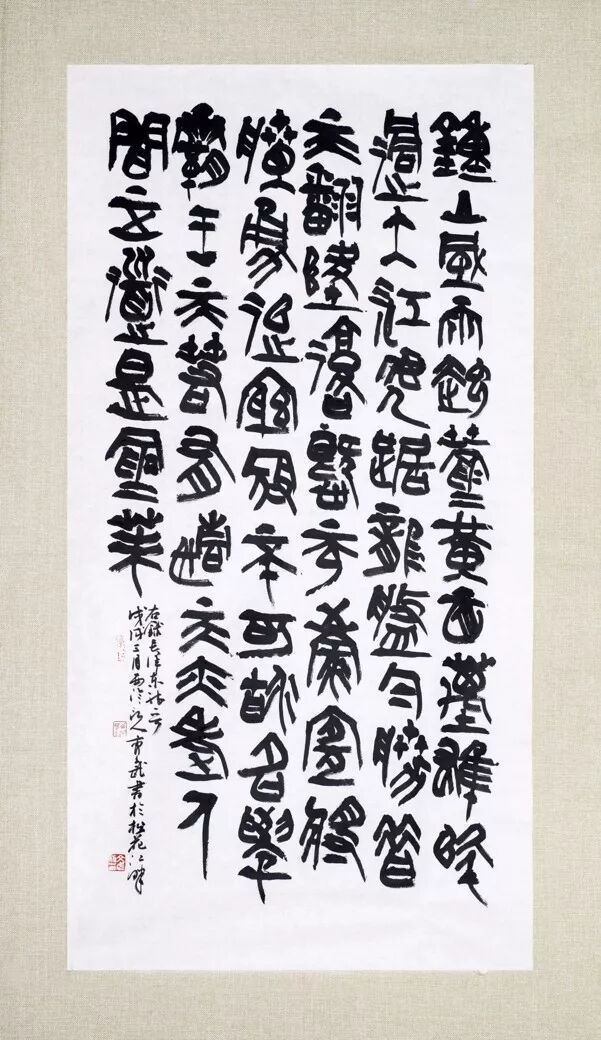 鍾山風雨起蒼黃百萬雄師
過大江虎踞龍盤今勝昔
天翻地覆慨而慷宜將
賸勇追窮寇不可沽名學
霸王天若有情天亦老人
間正道是滄桑
右錄毛澤東詩
戊戌三月西泠人書於松花江畔